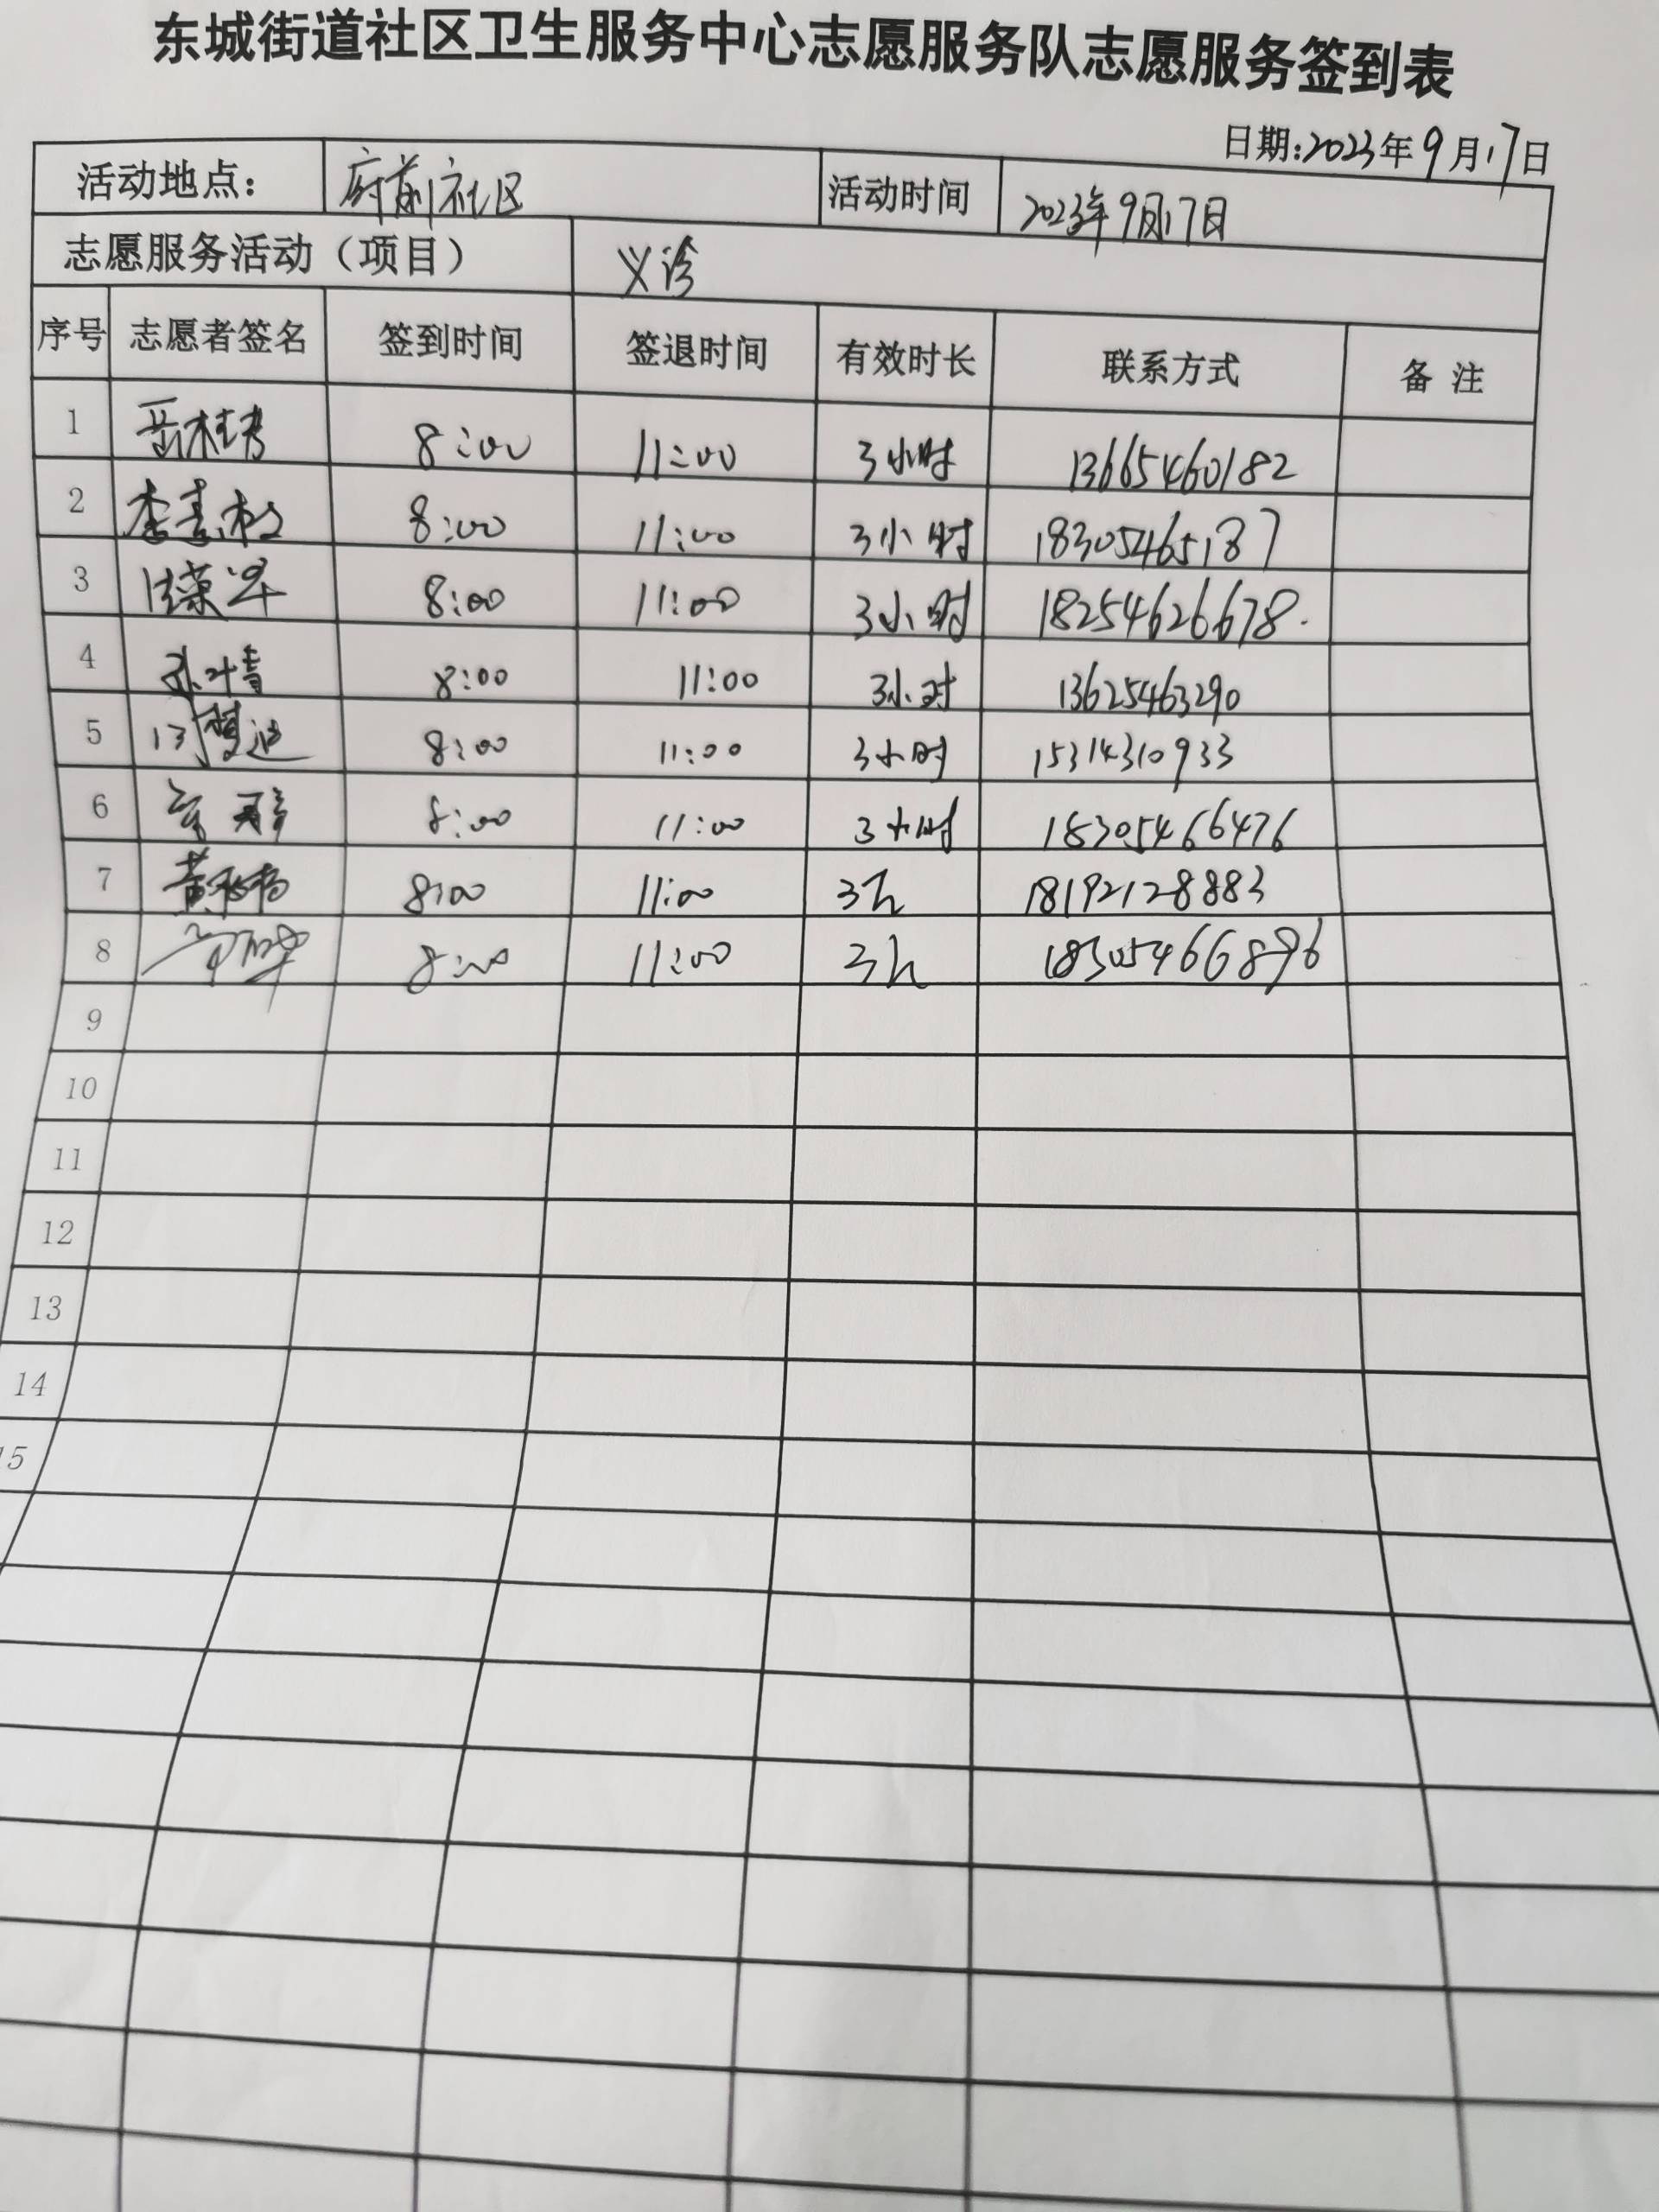 东城街道社区卫生服务中心志愿服务队志愿服务签到表
日期:2023年9月17日
活动地点: 府前社区 活动时间 2023年9月17日
志愿服务活动（项目） 义诊
序号 志愿者签名 签到时间 签退时间 有效时长 联系方式 备 注
1 8:00 11:00 3小时 13665460182
2 李素枝 8:00 11:00 3小时 18305465187
3 8:00 11:00 3小时 18254626678.
4 孙叶青 8:00 11:00 3小时 13625463290
5 门梦迪 8:00 11:00 3小时 15314310933
6 8:00 11:00 3小时 18305466476
7 8:00 11:00 3h 18192128883
8 8:00 11:00 3h 18305466896
9
10
11
12
13
14
15